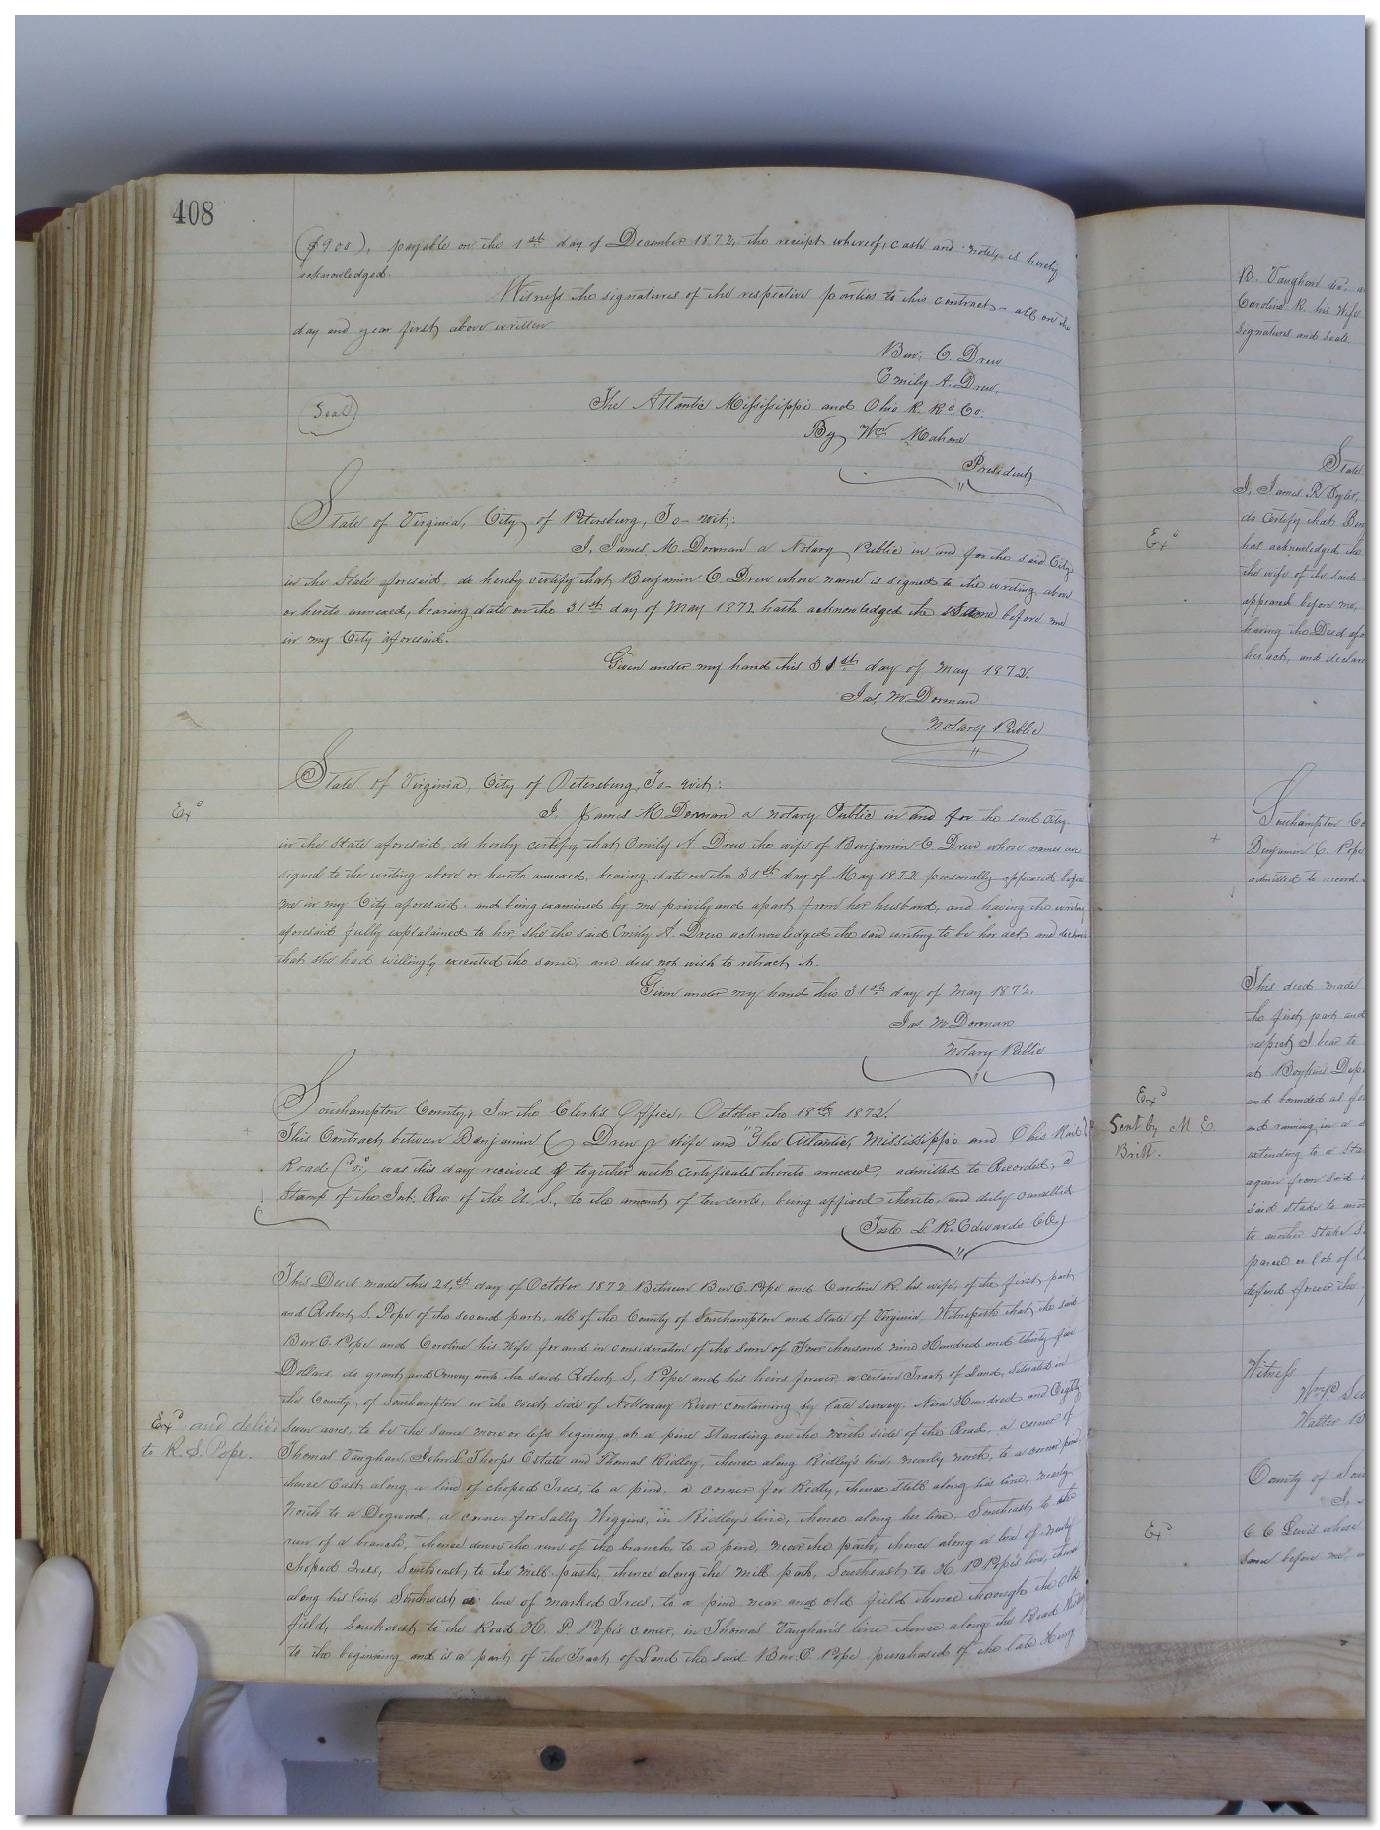 408
($900), payable on the 1st day of December 1872, the receipt whereof, cash and notes, is hereby
acknowledged.
Witness the signatures of the respective parties to this contract - all on the
day and year first above written
Benj. C. Drew
Emily A. Drew,
Seal
The Atlantic Mississippi and Ohio R. Rd Co:
By Wm Mahone
President
State of Virginia, City of Petersburg, To-wit:
I, James M. Dorman a Notary Public in and for the said City
in the State aforesaid, do hereby certify that Benjamin C. Drew whose name is signed to the writing above
or hereto annexed, bearing date on the 31st day of May 1872 hath acknowledged the same before me
in my City aforesaid.
Given under my hand this 31st day of May 1872.
Jas. M. Dorman
Notary Public
State of Virginia, City of Petersburg, To-wit:
Exd
I, James M. Dorman a notary Public in and for the said City
in the State aforesaid, do hereby certify that Emily A. Drew the wife of Benjamin C. Drew whose names are
signed to the writing above or hereto annexed, bearing date on the 31st day of May 1872 personally appeared before
me in my City aforesaid. and being examined by me privily and apart from her husband, and having the writing
aforesaid fully explained to her she the said Emily A. Drew acknowledged the said writing to be her act and declared
that she had willingly executed the same, and does not wish to retract it.
Given under my hand this 31st day of May 1872.
Jas. M. Dorman
Notary Public
Southampton County, In the Clerk's Office, October the 18th 1872.
This Contract between Benjamin C Drew & wife and "The Atlantic, Mississippi and Ohio Rail
Road Co", was this day received & together with certificates thereto annexed, admitted to Recorded, a
Stamp of the Int. Rev. of the U. S., to the amount of ten cents, being affixed thereto, and duly cancelled
Teste L. R. Edwards Clk,
This Deed made this 21st day of October 1872 Between Ben C. Pope and Caroline R. his wife, of the first part
and Robert S. Pope of the second part, all of the County of Southampton and State of Virginia. Witnesseth that the said
Ben C. Pope and Caroline his wife for and in consideration of the sum of Four thousand nine Hundred and thirty five
Dollars, do grant and Convey unto the said Robert S. Pope and his heirs forever a certain Tract of Land, Situated in
the County of Southampton on the south side of Nottoway River containing by late survey, Nine Hundred and Eighty
Exd and deliv'd
to R. S. Pope.
Seven acres, to be the same more or less begining at a pine standing on the north side of the Road, a corner of
Thomas Vaughan, John L Thorps Estate and Thomas Ridley, thence along Ridley's line, nearly north, to a corner pine,
thence East along a line of choped Trees, to a pine, a corner for Ridley, thence still along his line, nearly
North to a Dogwood, a corner for Sally Higgins, in Ridley's line, thence along her line, Southeast to the
run of a branch, thence down the run of the branch to a pine, near the path, thence along a line of newly
choped trees, Southeast, to the mill path, thence along the mill path, Southeast, to H. P. Pope's line, thence
along his line, Southwest a line of marked Trees, to a pine near an old field thence through the old
field, Southwest, to the Road H. P. Pope's corner, in Thomas Vaughan's line thence along the Road
to the beginning and is a part of the Tract of Land the said Ben. C Pope purchased of the late
B. Vaughan
Caroline R. his wife
Signatures and seals
State
I, James R Tyler,
do Certify that Ben
Exd
has acknowledged the
the wife of the said
appeared before me,
having the Deed
her act, and declare
Southampton Co
Benjamin C. Pope
admitted to record.
This deed made
the first part and
respect I bear to
at Boykins Depo
Exd
Sent by M E
Britt.
and bounded as
and running in a
extending to a Sta
again from said
said stake to
to another Stake
parcel or lot of
defend forever the
Witness
Walter
County of Sou
I,
Exd
C C Lewis whose
Same before me,